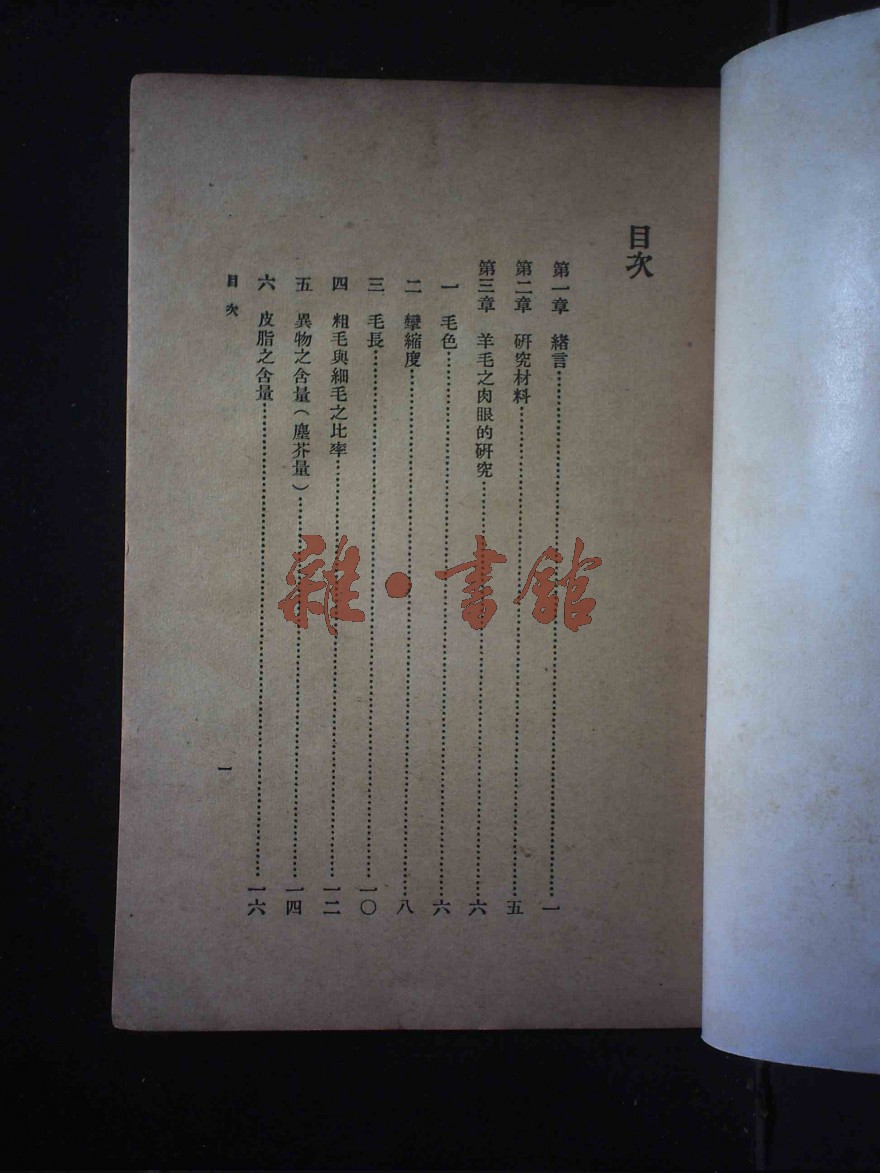 目次
第一章　緒言……一
第二章　研究材料……五
第三章　羊毛之肉眼的研究……六
一　毛色……六
二　攣縮度……八
三　毛長……一〇
四　粗毛與細毛之比率……一二
五　異物之含量（塵芥量）……一四
六　皮脂之含量……一六
目次
一
雜·書館